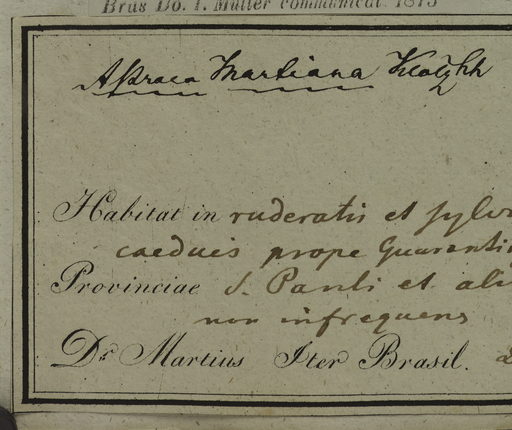 Brås Do. I. Müller communicat 1875
Astraea Martiana Klotzsch
Habitat in ruderatis et sylv
caeduis prope Guarenti
Provinciae S. Pauli et ali
non infrequens
Dr. Martius Iter Brasil.